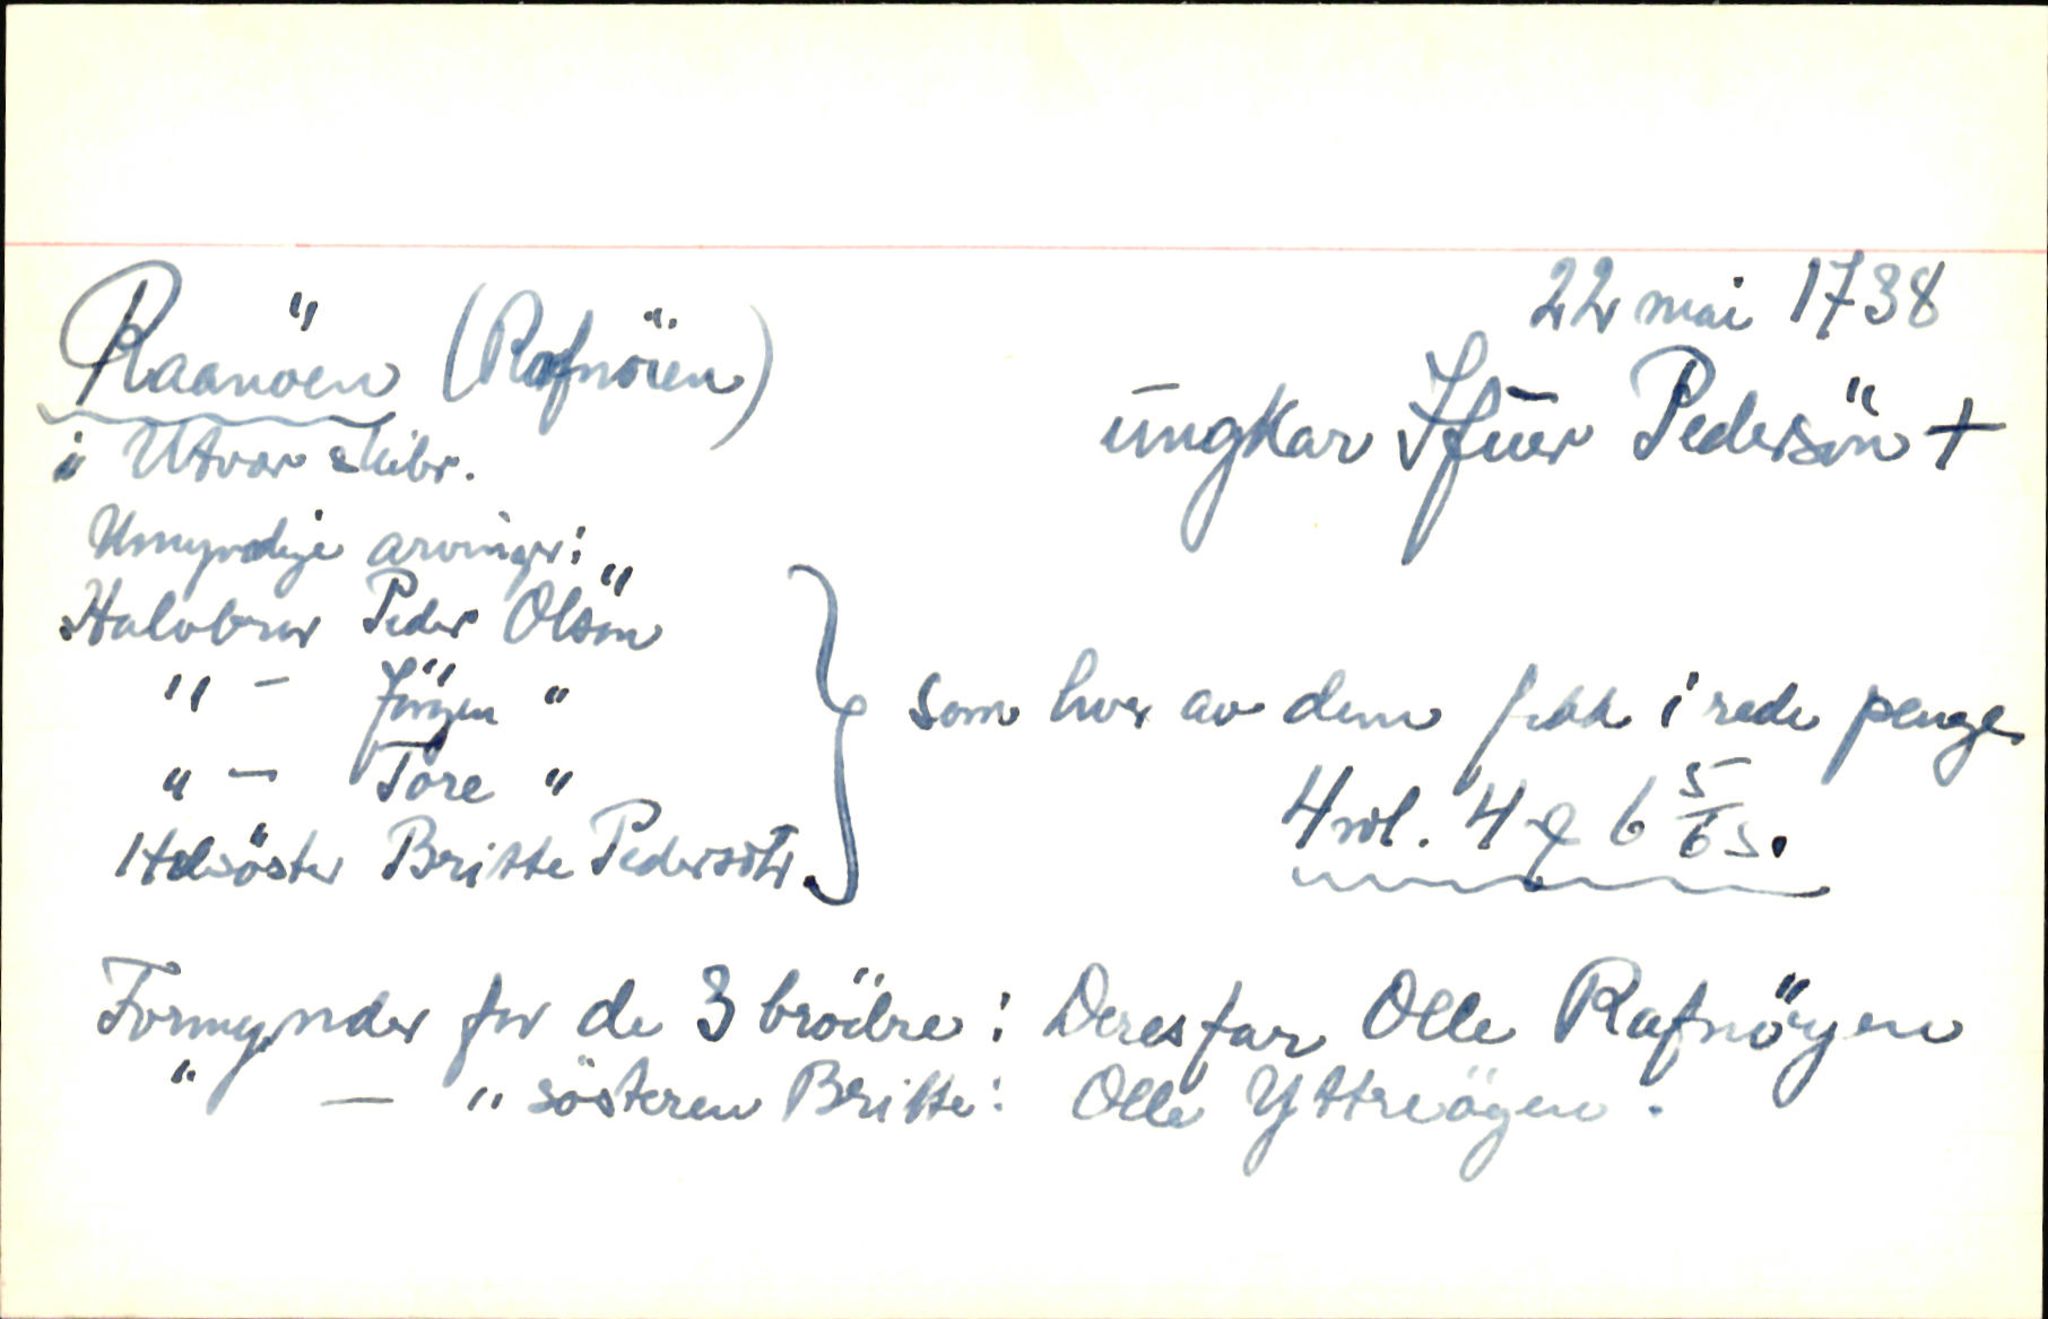 22 mai 1738
Raanöen (Rafnöien)
ungkar Ifuer Pedersön +
i Utvær skibr.
Umyndige arvinger:
Halvbror Peder Olsön
" - Jörgen "
" - Tore "
Helsöster Britte Pedersdtr.
som hver av dem fikk i rede penge
4 rdl. 4 ƺ 6 5/6 s.
Formynder for de 3 brödre: Deres far Olle Rafnöyen
" - " sösteren Britte: Olle Yttreögen.